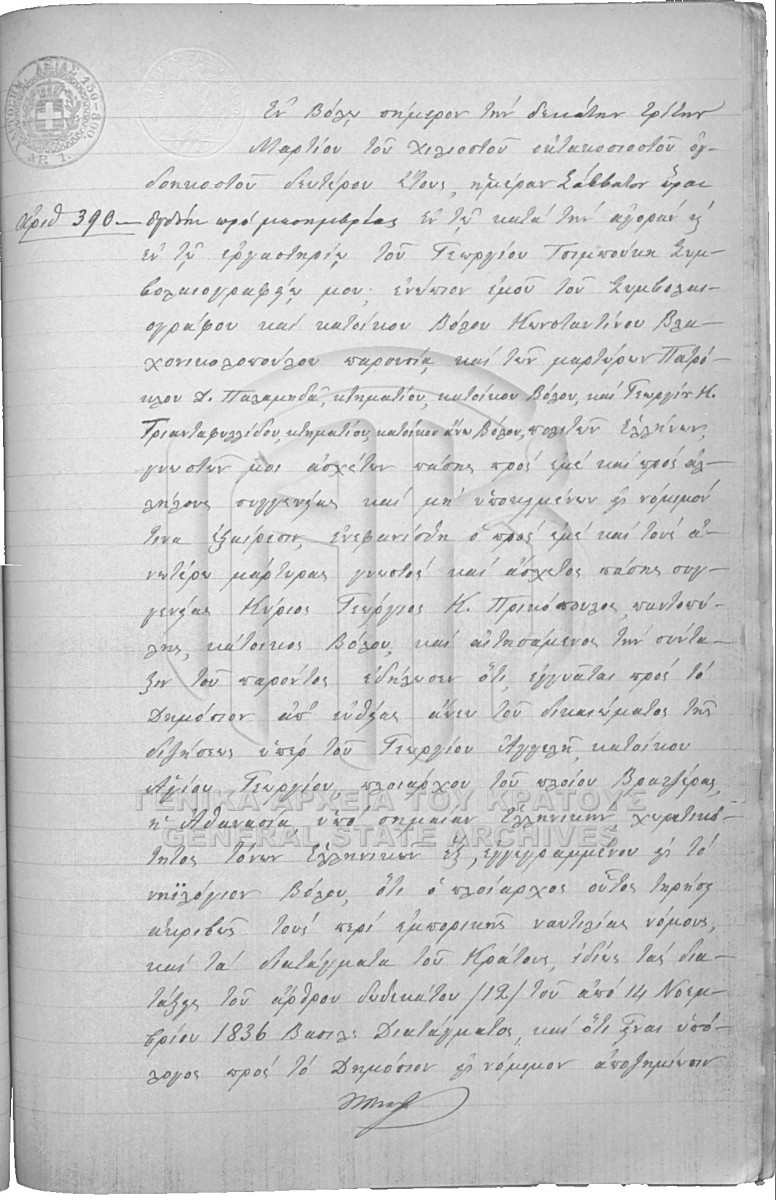 Ἐν Βόλῳ σήμερον τήν δεκάτην τρίτην
Μαρτίου τοῦ χιλιοστοῦ ὀκτακοσιοστοῦ ὀγ-
δοηκοστοῦ δευτέρου ἔτους, ἡμέραν Σάββατον ὥραν
ἀριθ 390
ὀγδόην πρό μεσημβρίας ἐν τῷ κατά τήν ἀγοράν
ἐν τῷ ἐργαστηρίῳ τοῦ Γεωργίου Τσιμπούκη Συμ-
βολαιογραφείῳ μου, ἐνώπιον ἐμοῦ τοῦ Συμβολαι-
ογράφου καί κατοίκου Βόλου Κωνσταντίνου Βλα-
χονικολοπούλου παρουσίᾳ καί τῶν μαρτύρων Πατρό-
κλου Δ. Παλαμηδᾶ, κτηματίου, κατοίκου Βόλου, καί Γεωργίου Κ.
Τριανταφυλλίδου, κτηματίου, κατοίκου ἄνω Βόλου, πολιτῶν Ἑλλήνων,
γνωστῶν μοι ἀσχέτων πάσης πρός ἐμέ καί πρός ἀλ-
λήλους συγγενείας καί μή ὑποκειμένων εἰς νόμιμόν
τινα ἐξαίρεσιν, ἐνεφανίσθη ὁ πρός ἐμέ καί τούς ἀ-
νωτέρω μάρτυρας γνωστός καί ἄσχετος πάσης συγ-
γενείας Κύριος Γεώργιος Κ. Πρικόπουλος, παντοπώ-
λης, κάτοικος Βόλου, καί αἰτησάμενος τήν σύντα-
ξιν τοῦ παρόντος ἐδήλωσεν ὅτι, ἐγγυᾶται πρός τό
Δημόσιον ἀπ' εὐθείας ἄνευ τοῦ δικαιώματος τῆς
διζήσεως ὑπέρ τοῦ Γεωργίου Ἀγγελῆ, κατοίκου
Ἁγίου Γεωργίου, πλοιάρχου τοῦ πλοίου Βρατσέρας,
ἡ Ἀθανασία ὑπό σημαίαν Ἑλληνικήν χωρητικό-
τητος τόνων Ἑλληνικῶν ἕξ, ἐγγεγραμμένου εἰς τό
νηϊλόγιον Βόλου, ὅτι ὁ πλοίαρχος οὗτος τηρήσει
ἀκριβῶς τούς περί ἐμπορικῆς ναυτιλίας νόμους,
καί τά διατάγματα τοῦ Κράτους, ἰδίως τάς δια-
τάξεις τοῦ ἄρθρου δωδεκάτου /12/ τοῦ ἀπό 14 Νοεμ-
βρίου 1836 Βασιλ. Διατάγματος, καί ὅτι εἶναι ὑπό-
λογος πρός τό Δημόσιον εἰς νόμιμον ἀποζημίωσιν
ΓΕΝΙΚΑ ΑΡΧΕΙΑ ΤΟΥ ΚΡΑΤΟΥΣ
GENERAL STATE ARCHIVES